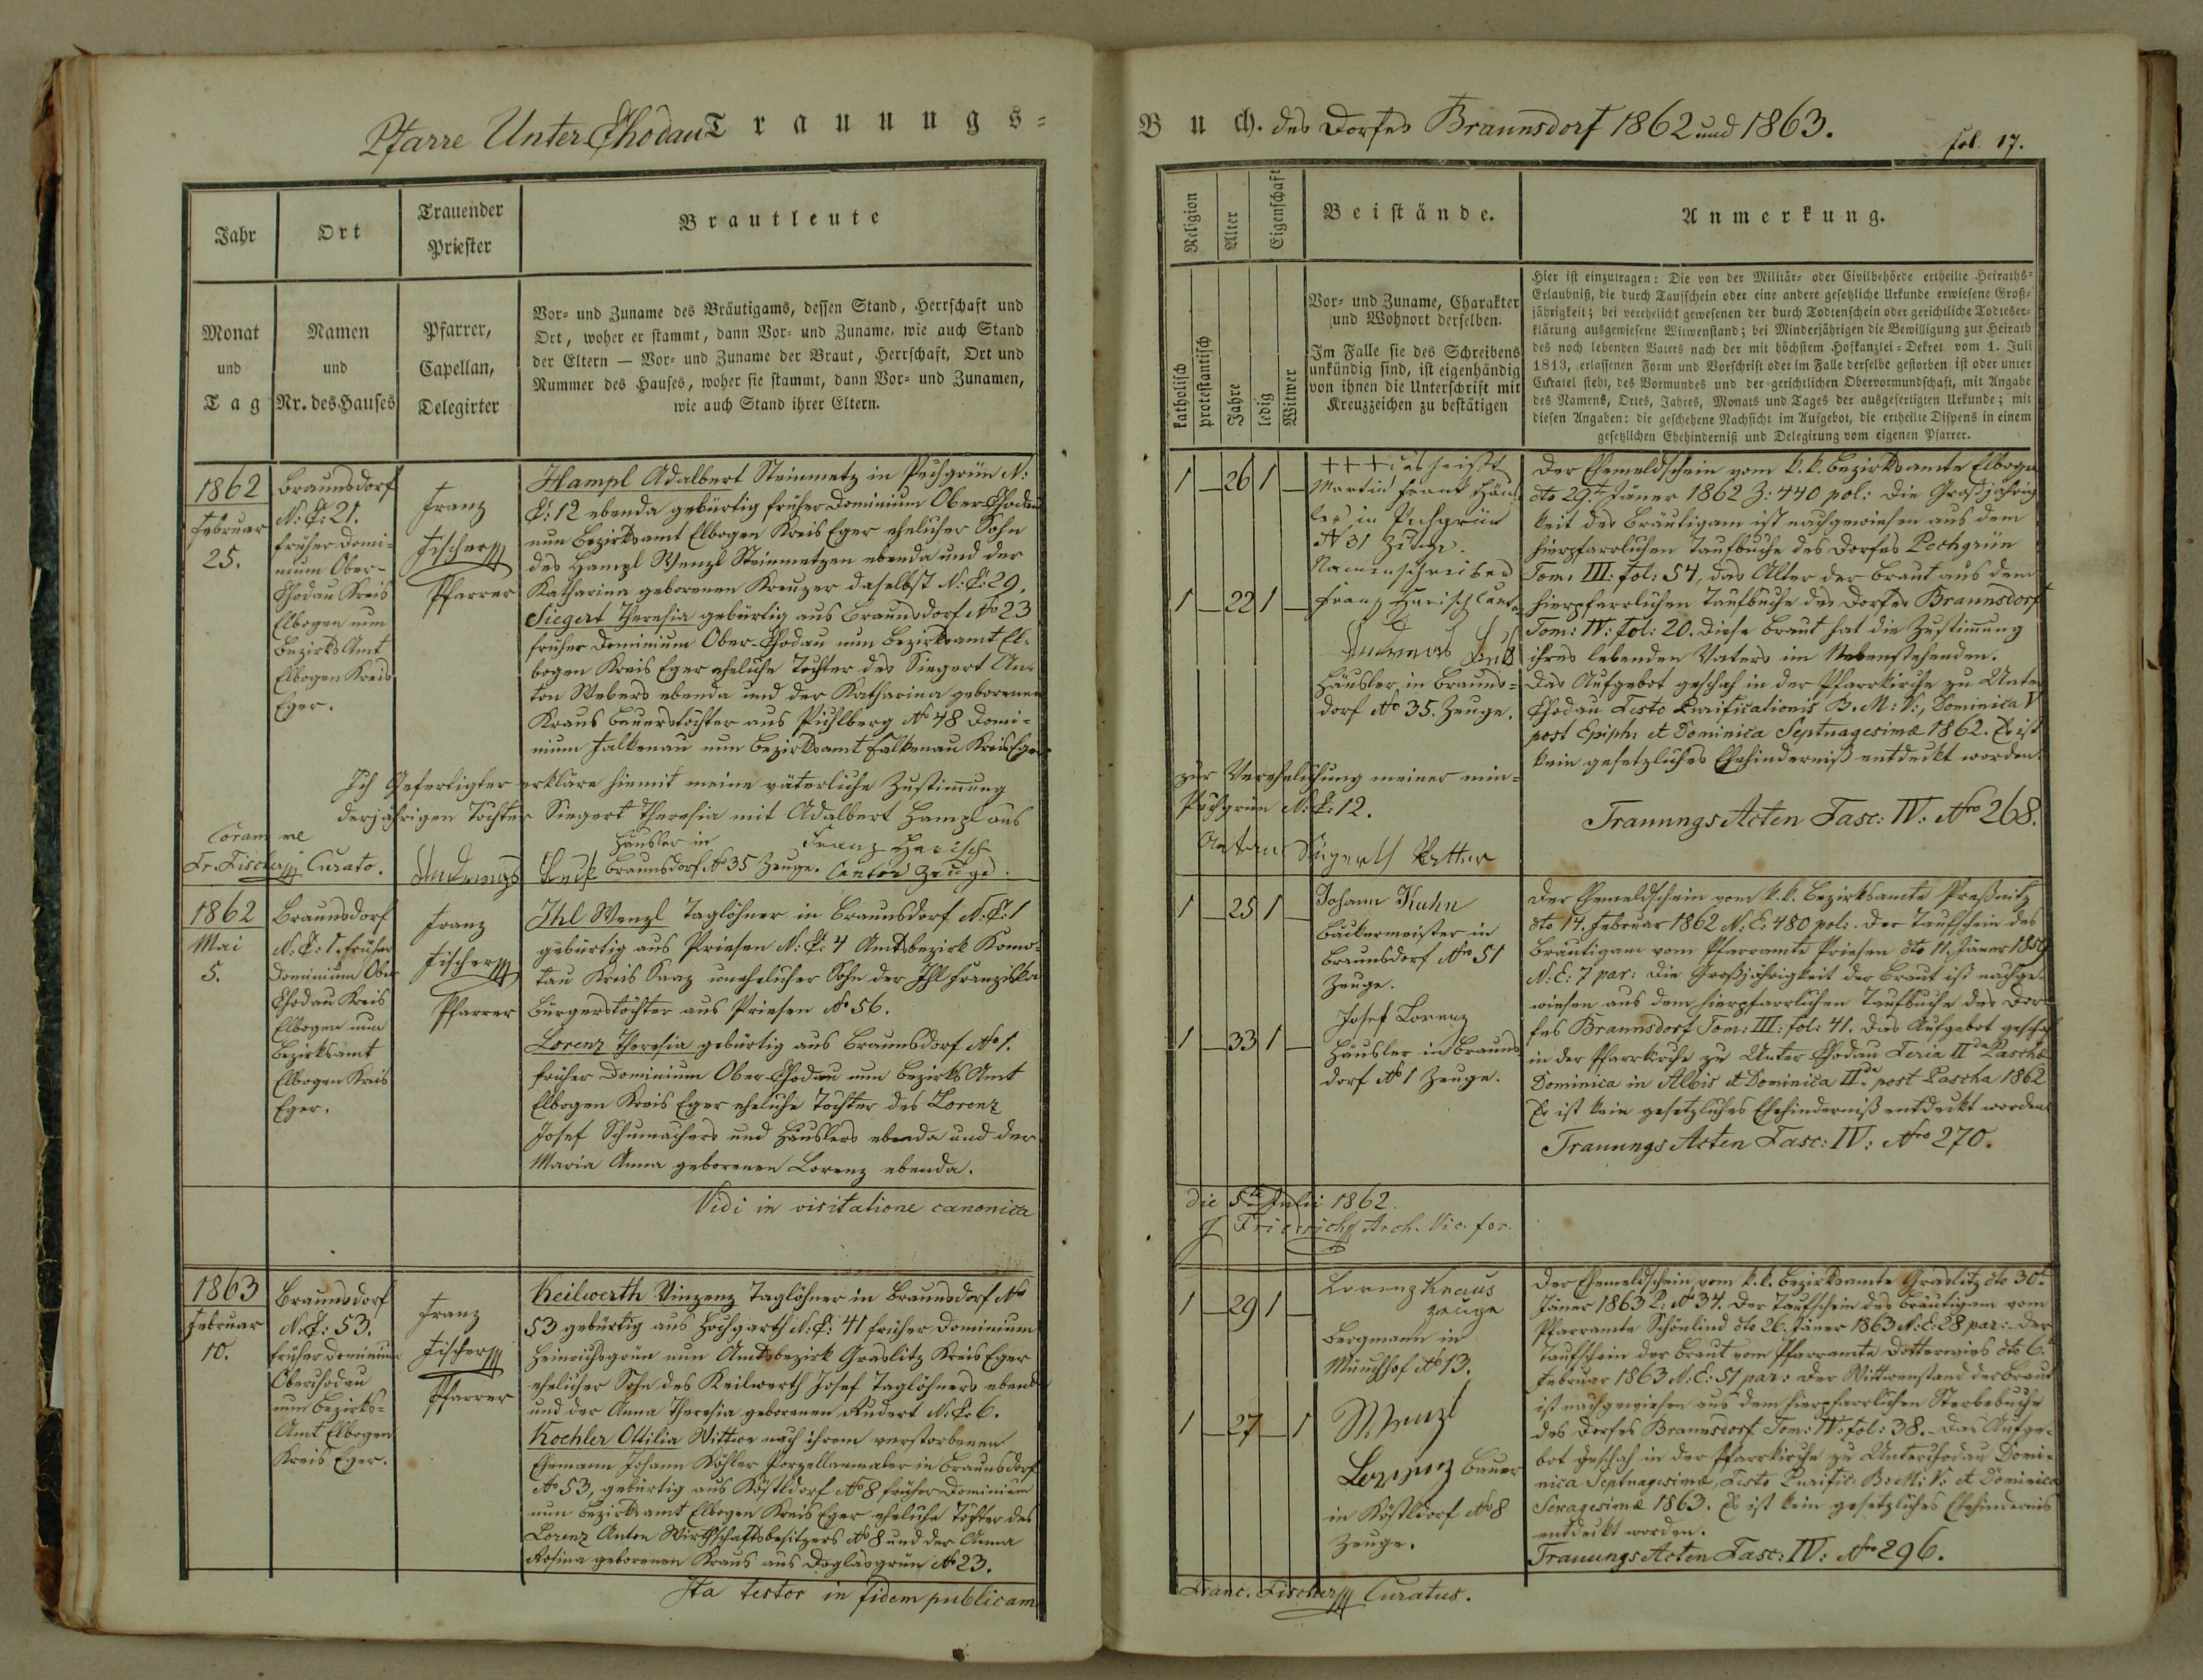 Pfarre Unter-Chodau Trauungs-
Jahr
Ort
Trauender
Priester
Brautleute
Monat
und
Tag
Namen
und
Nr. des Hauses
Pfarrer,
Capellan,
Delegirter
Vor- und Zuname des Bräutigams, dessen Stand, Herrschaft und
Ort, woher er stammt, dann Vor- und Zuname, wie auch Stand
der Eltern — Vor- und Zuname der Braut, Herrschaft, Ort und
Nummer des Hauses, woher sie stammt, dann Vor- und Zunamen,
wie auch Stand ihrer Eltern.
1862
Februar
25.
Braunsdorf
N: C: 21.
früher Domi-
nium Ober-
Chodau Kreis
Elbogen nun
Bezirks Amt
Elbogen Kreis
Eger.
Franz
Fischer
Pfarrer
Hampl Adalbert Steinmetz in Pechgrün N:
C: 12 ebenda gebürtig früher Dominium Ober Chodau
nun Bezirksamt Elbogen Kreis Eger ehelicher Sohn
des Hampl Wenzl Steinmetzen ebenda und der
Katharina geborenen Kreuzer daselbst N: C: 29.
Siegert Theresia gebürtig aus Braunsdorf No 23
früher Dominium Ober-Chodau nun Bezirksamt El-
bogen Kreis Eger eheliche Tochter des Siegert An-
ton Webers ebenda und der Katharina geborenen
Kraus Bauerstochter aus Pichlberg No 48 Domi-
nium Falkenau nun Bezirksamt Falkenau Kreis Eger
Ich Gefertigter erkläre hiemit meine väterliche Zustimung
derjährigen Tochter Siegert Theresia mit Adalbert Hampl aus
Coram me
Fr. Fischer Curato.
Andreas
Häusler in
Braunsdorf No 35 Zeuge.
Franz Harisch
Cantor Zeuge.
1862
Mai
5.
Braunsdorf
N: C: 1. früher
Dominium Ober
Chodau Kreis
Elbogen nun
Bezirksamt
Elbogen Kreis
Eger.
Franz
Fischer
Pfarrer
Ihl Wenzl Taglöhner in Braunsdorf N: C: 1
gebürtig aus Priesen N: C: 4 Amtsbezirk Komo-
tau Kreis Saaz unehelicher Sohn der Ihl Franziska
Bürgerstochter aus Priesen No 56.
Lorenz Theresia gebürtig aus Braunsdorf No 1.
früher Dominium Ober-Chodau nun Bezirks Amt
Elbogen Kreis Eger eheliche Tochter des Lorenz
Josef Schumachers und Häuslers ebenda und der
Maria Anna geborenen Lorenz ebenda.
Vidi in visitatione canonica
1863
Februar
10.
Braunsdorf
N: C: 53.
früher Dominium
Oberchodau
nun Bezirks-
Amt Elbogen
Kreis Eger.
Franz
Fischer
Pfarrer
Keilwerth Vinzenz Taglöhner in Braunsdorf No
53 gebürtig aus Hochgarth N: C: 41 früher Dominium
Heinrichsgrün nun Amtsbezirk Graslitz Kreis Eger
ehelicher Sohn des Keilwerth Josef Taglöhners ebenda
und der Anna Theresia geborenen Rudert N: C: 6.
Koehler Ottilia Wittwe nach ihrem verstorbenen
Ehemann Johann Köhler Porzellanmaler in Braunsdorf
No 53, gebürtig aus Köstldorf No 8 früher Dominium
nun Bezirksamt Elbogen Kreis Eger eheliche Tochter des
Lorenz Anton Wirthschaftsbesitzers No 8 und der Anna
Rosina geborenen Kraus aus Doglasgrün No 23.
Ita testor in fidem publicam
Buch. des Dorfes Braunsdorf 1862 und 1863.
fol. 17.
Religion
Alter
Eigenschaft
Beistände.
Anmerkung.
katholisch
protestantisch
Jahre
ledig
Witwer
Vor- und Zuname, Charakter
und Wohnort derselben.
Im Falle sie des Schreibens
unkündig sind, ist eigenhändig
von ihnen die Unterschrift mit
Kreuzzeichen zu bestätigen
Hier ist einzutragen: Die von der Militär- oder Civilbehörde ertheilte Heiraths-
Erlaubniß, die durch Taufschein oder eine andere gesetzliche Urkunde erwiesene Groß-
jährigkeit; bei verehelicht gewesenen der durch Todtenschein oder gerichtliche Todteser-
klärung ausgewiesene Witwenstand; bei Minderjährigen die Bewilligung zur Heirath
des noch lebenden Vaters nach der mit höchstem Hofkanzlei-Dekret vom 1. Juli
1813, erlassenen Form und Vorschrift oder im Falle derselbe gestorben ist oder unter
Curatel steht, des Vormundes und der gerichtlichen Obervormundschaft, mit Angabe
des Namens, Ortes, Jahres, Monats und Tages der ausgefertigten Urkunde; mit
diesen Angaben: die geschehene Nachsicht im Aufgebot, die ertheilte Dispens in einem
gesetzlichen Ehehinderniß und Delegirung vom eigenen Pfarrer.
1 — 26 1 —
1 — 22 1 —
+++ das heißt
Martin Frank Häus-
ler in Pechgrün
N 31 Zeuge.
Namenschreiber
Franz Harisch Cantor
Andreas
Häusler in Brauns-
dorf No 35. Zeuge.
Der Ehemeldschein vom k. k. Bezirksamte Elbogen
dto 29t. Jäner 1862 Z: 440 pol: Die Großjährig-
keit des Bräutigam ist nachgewiesen aus dem
hierpfarrlichen Taufbuche des Dorfes Pechgrün
Tom: III: fol: 54, das Alter der Braut aus dem
hierpfarrlichen Taufbuche des Dorfes Braunsdorf
Tom: IV: fol: 20. Diese Braut hat die Zustimung
ihres lebenden Vaters im Nebenstehenden.
Das Aufgebot geschah in der Pfarrkirche zu Unter
Chodau Festo Purificationis B. M: V:, Dominica V
post Epiph: et Dominica Septuagesimæ 1862. Es ist
kein gesetzliches Ehehinderniß entdeckt worden.
Trauungs Acten Fasc: IV: Nro 268.
zur Verehelichung meiner min-
Pechgrün N: C: 12.
Anton Siegerth Vatter
1 — 25 1 —
1 — 33 1 —
Johann Kuhn
Bäckermeister in
Braunsdorf No 51
Zeuge.
Josef Lorenz
Häusler in Brauns
dorf No 1 Zeuge.
Der Ehemeldschein vom k. k. Bezirksamte Preßnitz
dto 14. Februar 1862 N: E: 480 pol:. Der Taufschein des
Bräutigam vom Pfarramte Priesen dto 11. Jäner 1859
N: E: 7 par: Die Großjährigkeit der Braut ist nachge-
wiesen aus dem hierpfarrlichen Taufbuche des Dor-
fes Braunsdorf Tom: III: fol: 41. Das Aufgebot geschah
in der Pfarrkirche zu Unter Chodau Feria IIda Paschæ
Dominica in Albis et Dominica IIda post Pascha 1862
Es ist kein gesetzliches Ehehinderniß entdeckt worden.
Trauungs Acten Fasc: IV: Nro 270.
die 5ta Julii 1862.
J Friedrich Arch. Vic. for.
1 — 29 1 —
1 — 27 — 1
Lorenz Kraus
Zeuge
Bergmann in
Münchhof No 13.
Wenzl
Lorenz Bauer
in Köstldorf No 8
Zeuge.
Der Ehemeldschein vom k. k. Bezirksamte Graslitz dto 30t.
Jäner 1863 P: No 34. Der Taufschein des Bräutigam vom
Pfarramte Schönlind dto 26. Jäner 1863 N: E: 28 par:. Der
Taufschein der Braut vom Pfarramte Dotterwies dto 6t
Februar 1863 N: E: 51 par: Der Wittwenstand der Braut
ist nachgewiesen aus dem hierpfarrlichen Sterbebuche
des Dorfes Braunsdorf Tom: IV: fol: 38. – Das Aufge-
bot geschah in der Pfarrkirche zu Unterchodau Domi-
nica Septuagesimæ, Festo Purific: B: M: V: et Dominica
Sexagesimæ 1863. Es ist kein gesetzliches Ehehindernis
entdeckt worden.
Trauungs Acten Fasc: IV: Nro 296.
Franc. Fischer Curatus.